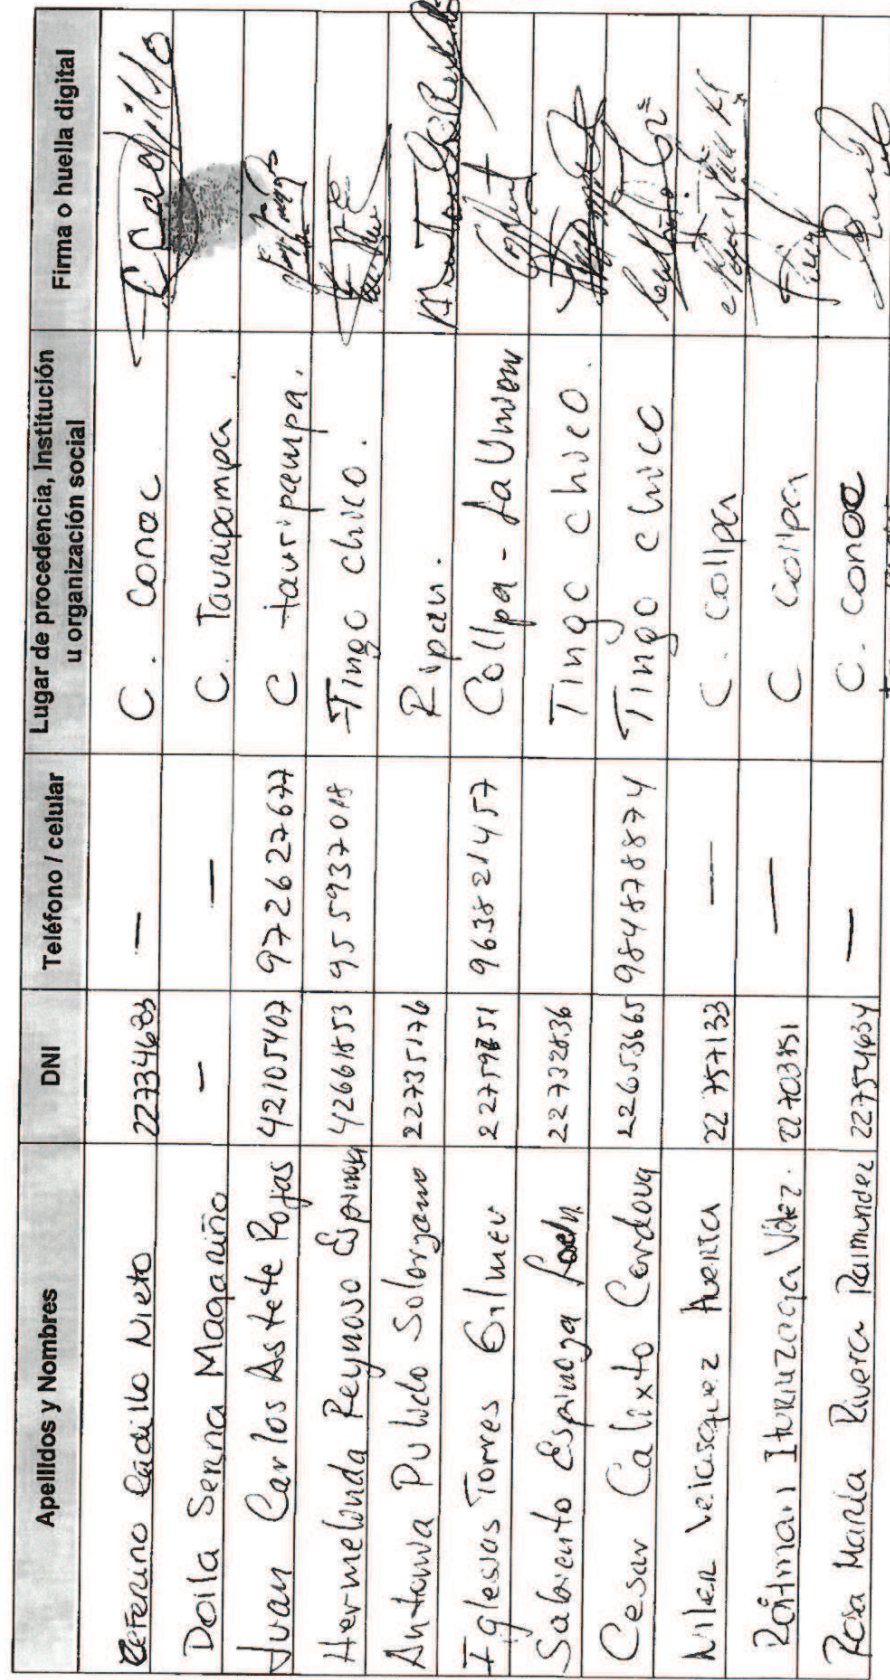 Apellidos y Nombres DNI Teléfono / celular Lugar de procedencia, Institución u organización social Firma o huella digital
Ceferino Cadillo Nieto 22734683 — C. Conoc
Doila Serna Magariño — — C. Tauripampa.
Juan Carlos Astete Rojas 42105407 972627677 C tauripampa.
Hermelinda Reynoso Espinoza 42661853 955937018 Tingo chico.
Antonia Pulido Solorzano 22735176 Ripan.
Iglesias Torres Gilmer 963821457 Collpa - La Union
Sabiento Espinoza 22732836 Tingo chico.
Cesar Calixto Cordova 22653665 984878874 Tingo chico
Niler Velasquez Huerta 22757133 — C. Collpa
Iturizaga 22703751 — C Collpa
Rosa Maria Rivera Raimundez 22754634 — C. Conoc